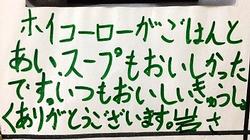 ホイコーローがごはんと
あい、スープもおいしかった
です。いつもおいしいきゅうしょ
くありがとうございます。岩さ